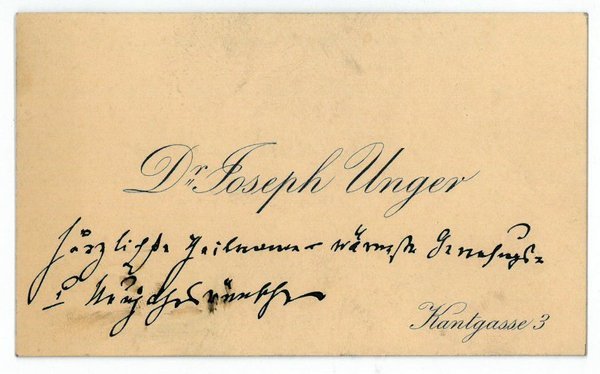 Dr. Joseph Unger
Herzlichste Theilnahme wärmste Genesungs-
u Neujahrswünsche
Kantgasse 3